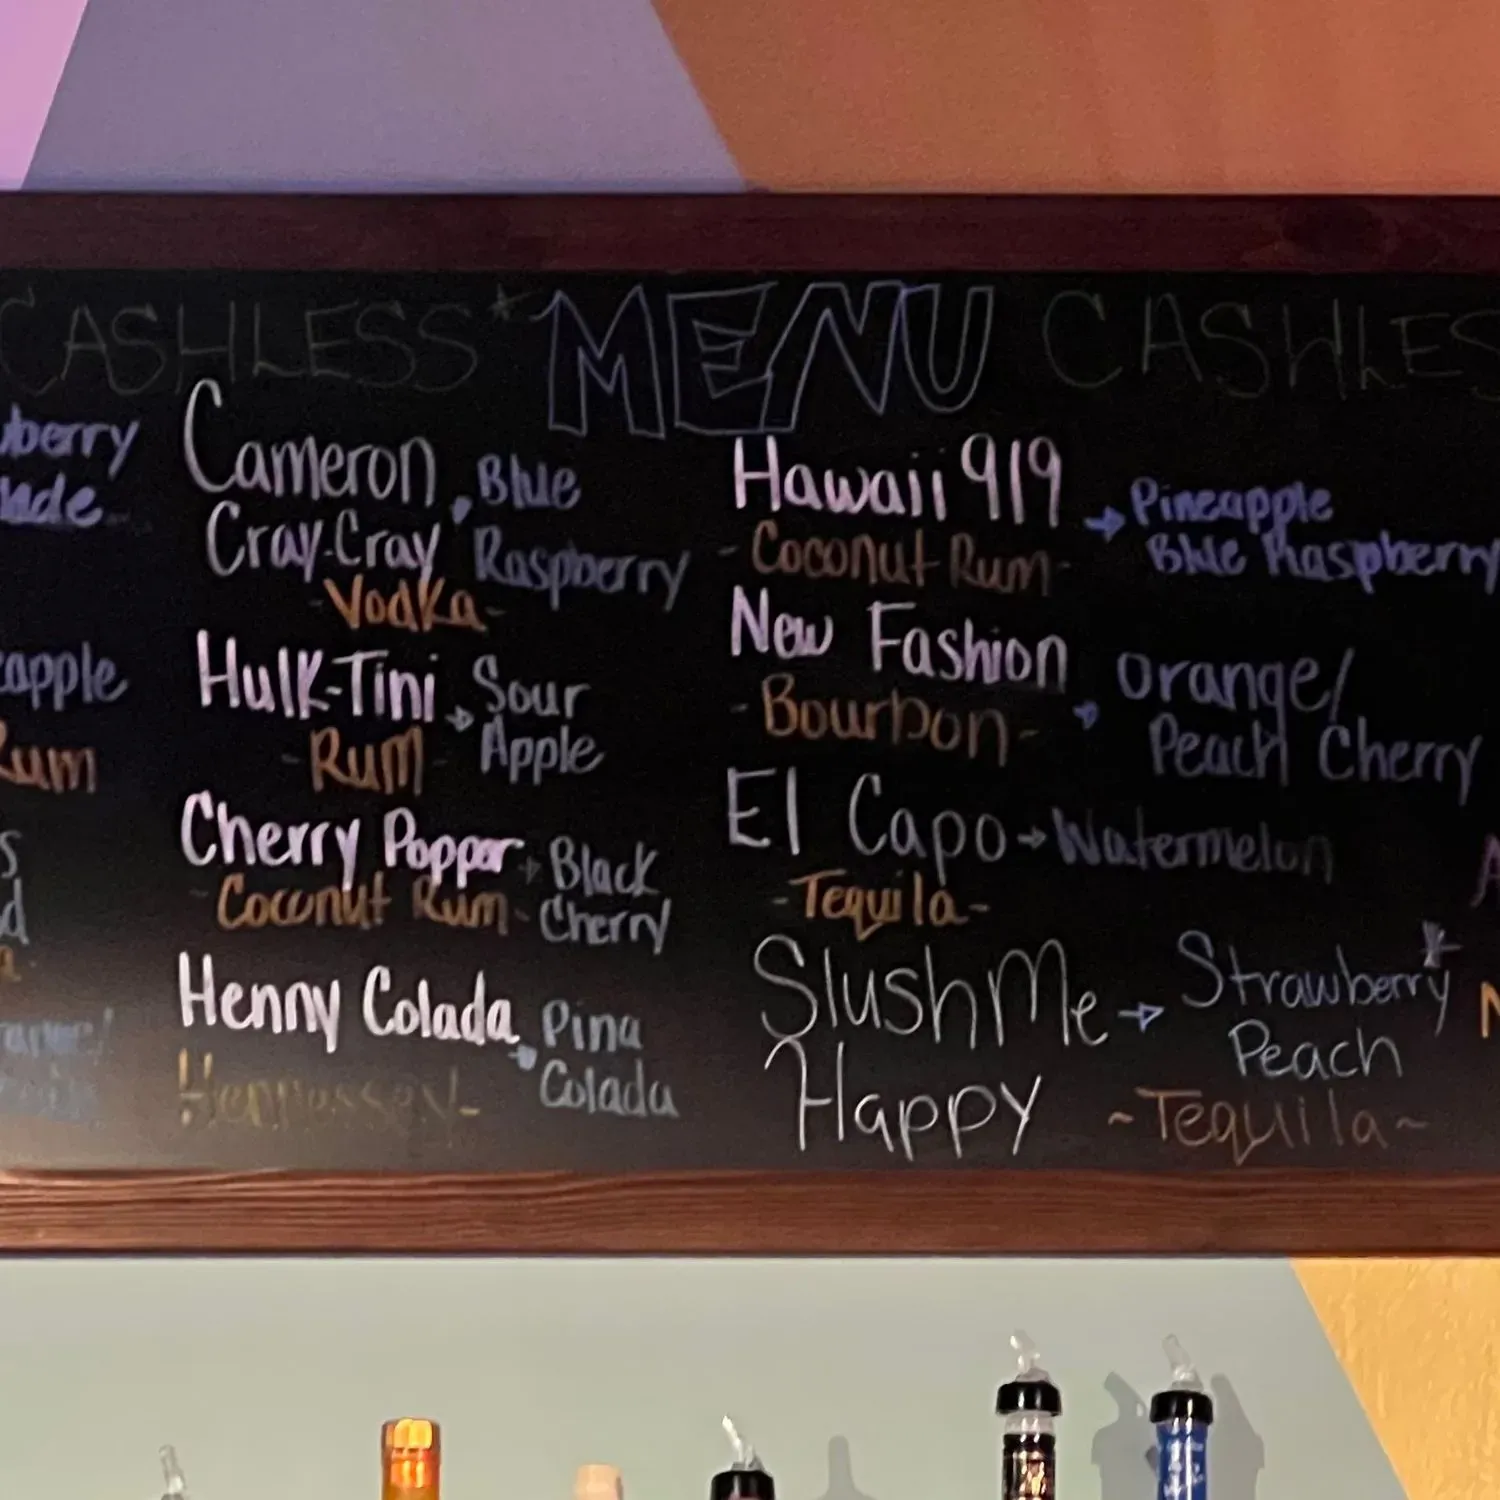 CASHLESS* MENU CASHLES
berry
ade
apple
Rum
s
d
Cameron
Cray-Cray
Blue
Raspberry
-Vodka-
Hulk-Tini
Sour
Apple
-Rum-
Cherry Popper
Black
Cherry
-Coconut Rum-
Henny Colada
Pina
Colada
Hennessey-
Hawaii 919
Pineapple
Blue Raspberry
-Coconut Rum-
New Fashion
Orange/
Peach Cherry
-Bourbon-
El Capo → Watermelon
-Tequila-
SlushMe → Strawberry*
Happy
Peach
~Tequila~
A
N